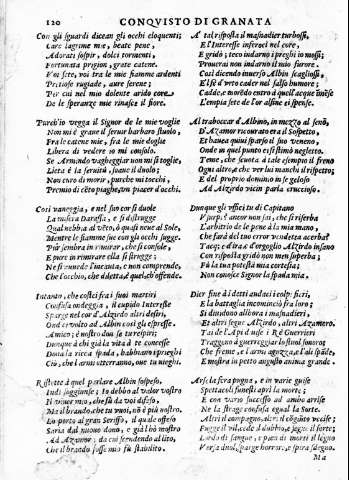 120 CONQVISTO DI GRANATA
Con gli sguardi dicean gli occhi eloquenti;
Care lagrime mie, beate pene,
Adorati sospir, dolci tormenti,
Fortunata prigion, grate catene.
Voi sete, voi tra le mie fiamme ardenti
Pretiose rugiade, aure serene;
Per cui nel mio dolente arido core
De le speranze mie rinasce il fiore.
Purch'io vegga il Signor de le mie voglie
Non mi è grave il servir barbaro stuolo,
Fra le catene mie, fra le mie doglie
Libera di vedere io mi consolo.
Se Armindo vagheggiar non mi si toglie,
Lieta è la servitù, soave il duolo;
Nei certo di morir, purche mi tocchi,
Premio di cèto piaghe, un piacer d'occhi.
Così vaneggia, e nel suo cor si duole
La misera Darassa, e si distrugge
Qual nebbia al vèto, ò quasi neve al Sole,
Mentre le fiamme sue con gli occhi sugge.
Pur sembra in rimirar, che si console,
E pure in rimirar ella si strugge;
Ne s'intende l'incauta, e non comprende,
Che l'occhio, che diletta, è quel, ch'offende.
Intanto, che costei fra i suoi martiri
Confusa ondeggia, il cupido interesse
Sparge nel cor d'Alzirdo altri desiri,
Ond'ei volto ad Albin così gli espresse.
Amico; è nostro duo sà tu respiri;
Dunque à chi già la vita à te concesse
Dona la ricca spada, habbiano i preghi
Ciò, che l'armi otterranno, oue tu neghi.
Ristette à quel parlare Albin sospeso,
Indi soggiunse; io debbo al valor vostro
Il viuer mio, che fù da voi difeso,
Ma il brando, che tu vuoi, nò è più nostro.
Lo porto al gran Seriffo, il quale offeso
Saria dal nuouo dono, e già l'hò mostro
Ad Azamor; da cui scendendo al lito,
Che il brando fosse mio fù stabilito.
A tal risposta il masnadier turbossi,
E l'Interesse inferocì nel core,
E gridò; teco indarno i preghi io mossi;
Prouerai non indarno il mio furore.
Così dicendo inuerso Albin scagliossi,
E lse d'vrto cader nel salso humore;
Cadde, e morèdo entrò à quell'acque infise
L'empia sete de l'or alfine si spense.
Al traboccar d'Albino, in mezzo al senò,
D'Azamor ricourato era il Sospetto,
Et hauea quiui sparso il suo veneno,
Onde in quel punto ei si stimò negletto.
Teme, che scuota à tale esempio il freno
Ogni altro, e che ver lui manchi il rispetto;
E del proprio dominio insè geloso
Ad Alzirdo vicin parla cruccioso.
Dunque gli vffici tu di Capitano
Vsurpi? ancor non sai, che si riserba
L'arbitrio de le pene à la mia mano,
Che farà del tuo error vendetta acerba?
Tacq; e d'ira, e d'orgoglio Alzirdo insano
Con risposta gridò non men superba,
Fù la tua potestà mia cortesia;
Non conosce Signor la spada mia.
Dier fine à i detti audaci i colpi fieri,
E la battaglia incominciò fra loro;
Si diuidono allhora i masnadieri,
Et altri segue Alzirdo, altri Azamoro.
Tai de l'Api d'use i Rè Guerrieri
Traggono à guerreggiar lo stuol sonoro;
Che freme, e l'armi aguzza, e l'ali spàde,
E mostra in petto angusto anima grande.
Arse la fera pugna, e in varie guise
Spettacoli funesti aprì la morte;
E con vario successo ad ambo arrise
Ne la strage confusa egual la Sorte.
Altri il compagno, altri il cògiùto vecise;
Fugge il vil, cede il dubbio, e jugne il forte;
Lorda di sangue, e pasta di morti il legno
Versa duol, sparge horrore, e spira sdegno.
Ma